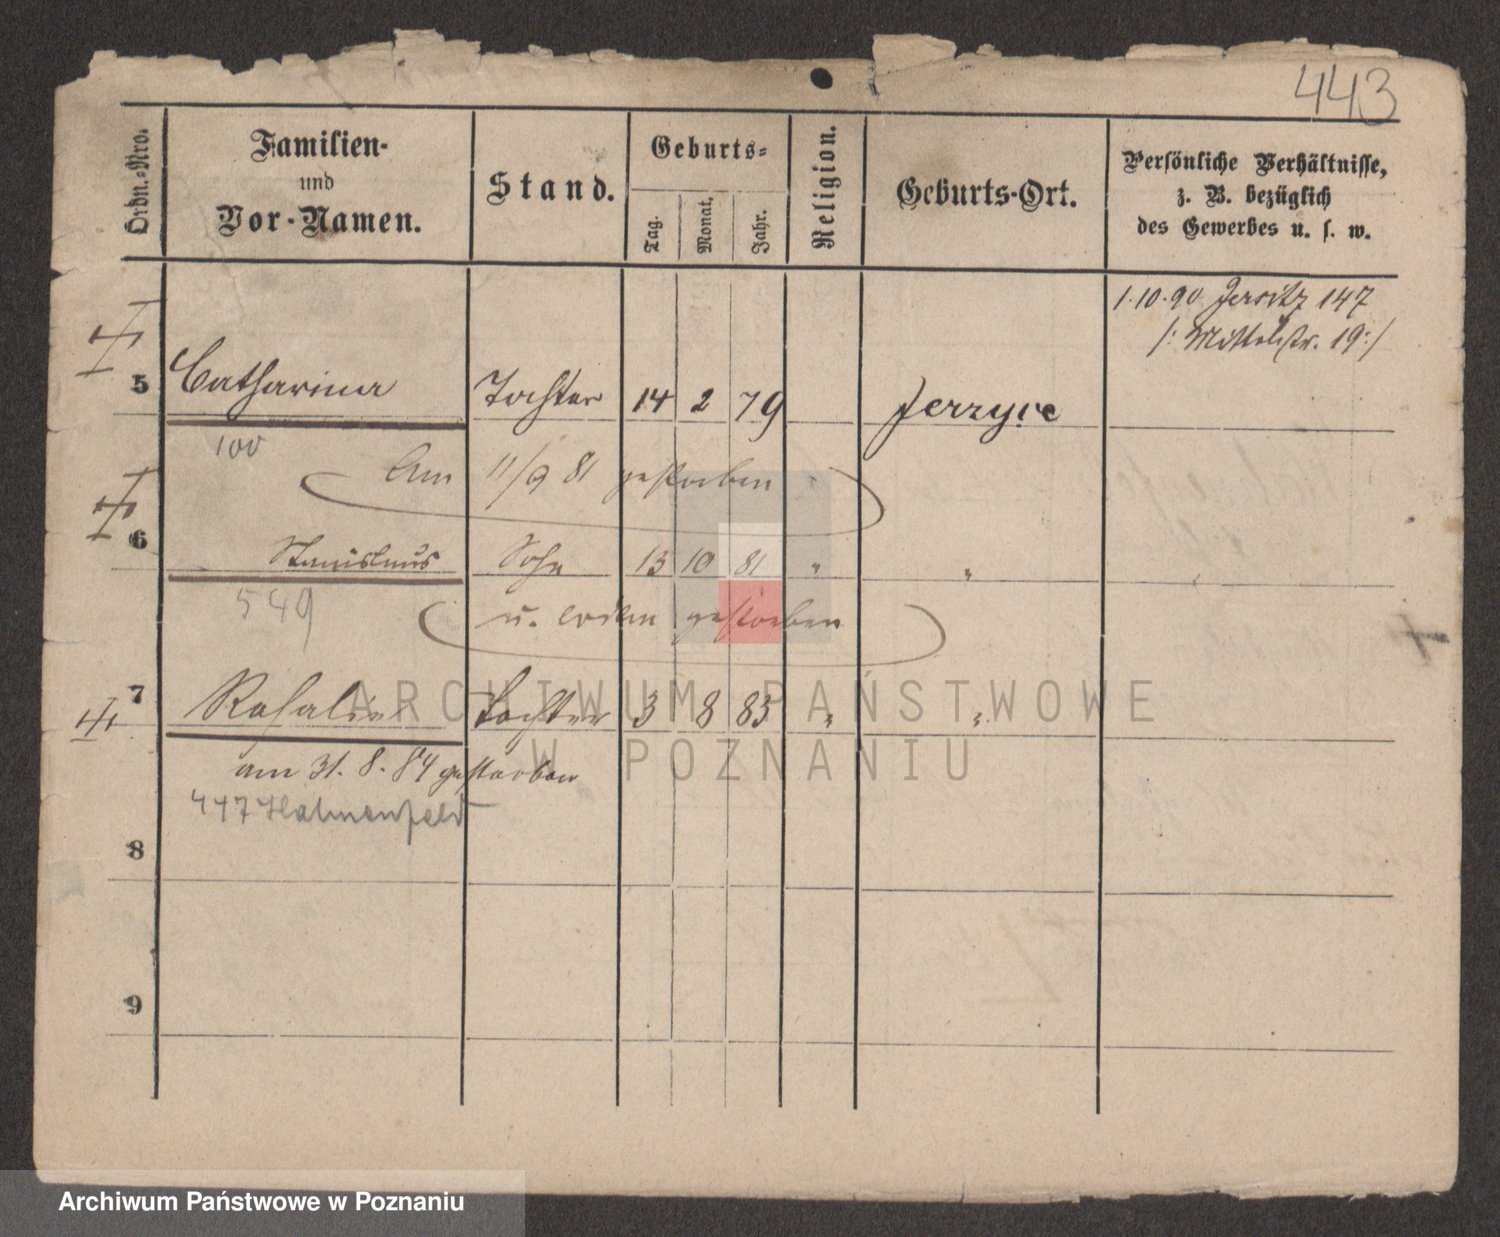 443
Ordn.-Nro.
Familien-
und
Vor-Namen.
Stand.
Geburts-
Tag.
Monat.
Jahr.
Religion.
Geburts-Ort.
Persönliche Verhältnisse,
z. B. bezüglich
des Gewerbes u. s. w.
1.10.90 Jersitz 147
/: Mittelstr. 19 :/
5 Catharina Tochter 14 2 79 Jerzyce
100
Am 11/9 81 gestorben
6 Stanislaus Sohn 13 10 81 " "
549
gestorben
7 Rosalie Tochter 3 8 83 " "
am 31. 8. 84 gestorben
447
8
9
ARCHIWUM PAŃSTWOWE
W POZNANIU
Archiwum Państwowe w Poznaniu